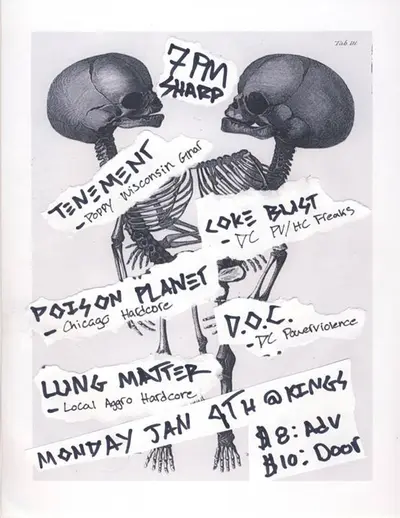 Tab. III.
7 PM
SHARP
TENEMENT
- Poppy Wisconsin Gnar
COKE BUST
- DC PV/HC Freaks
POISON PLANET
- Chicago Hardcore
D.O.C.
- DC Powerviolence
LUNG MATTER
- Local Aggro Hardcore
MONDAY JAN 4TH @ KINGS
$8: Adv
$10: Door